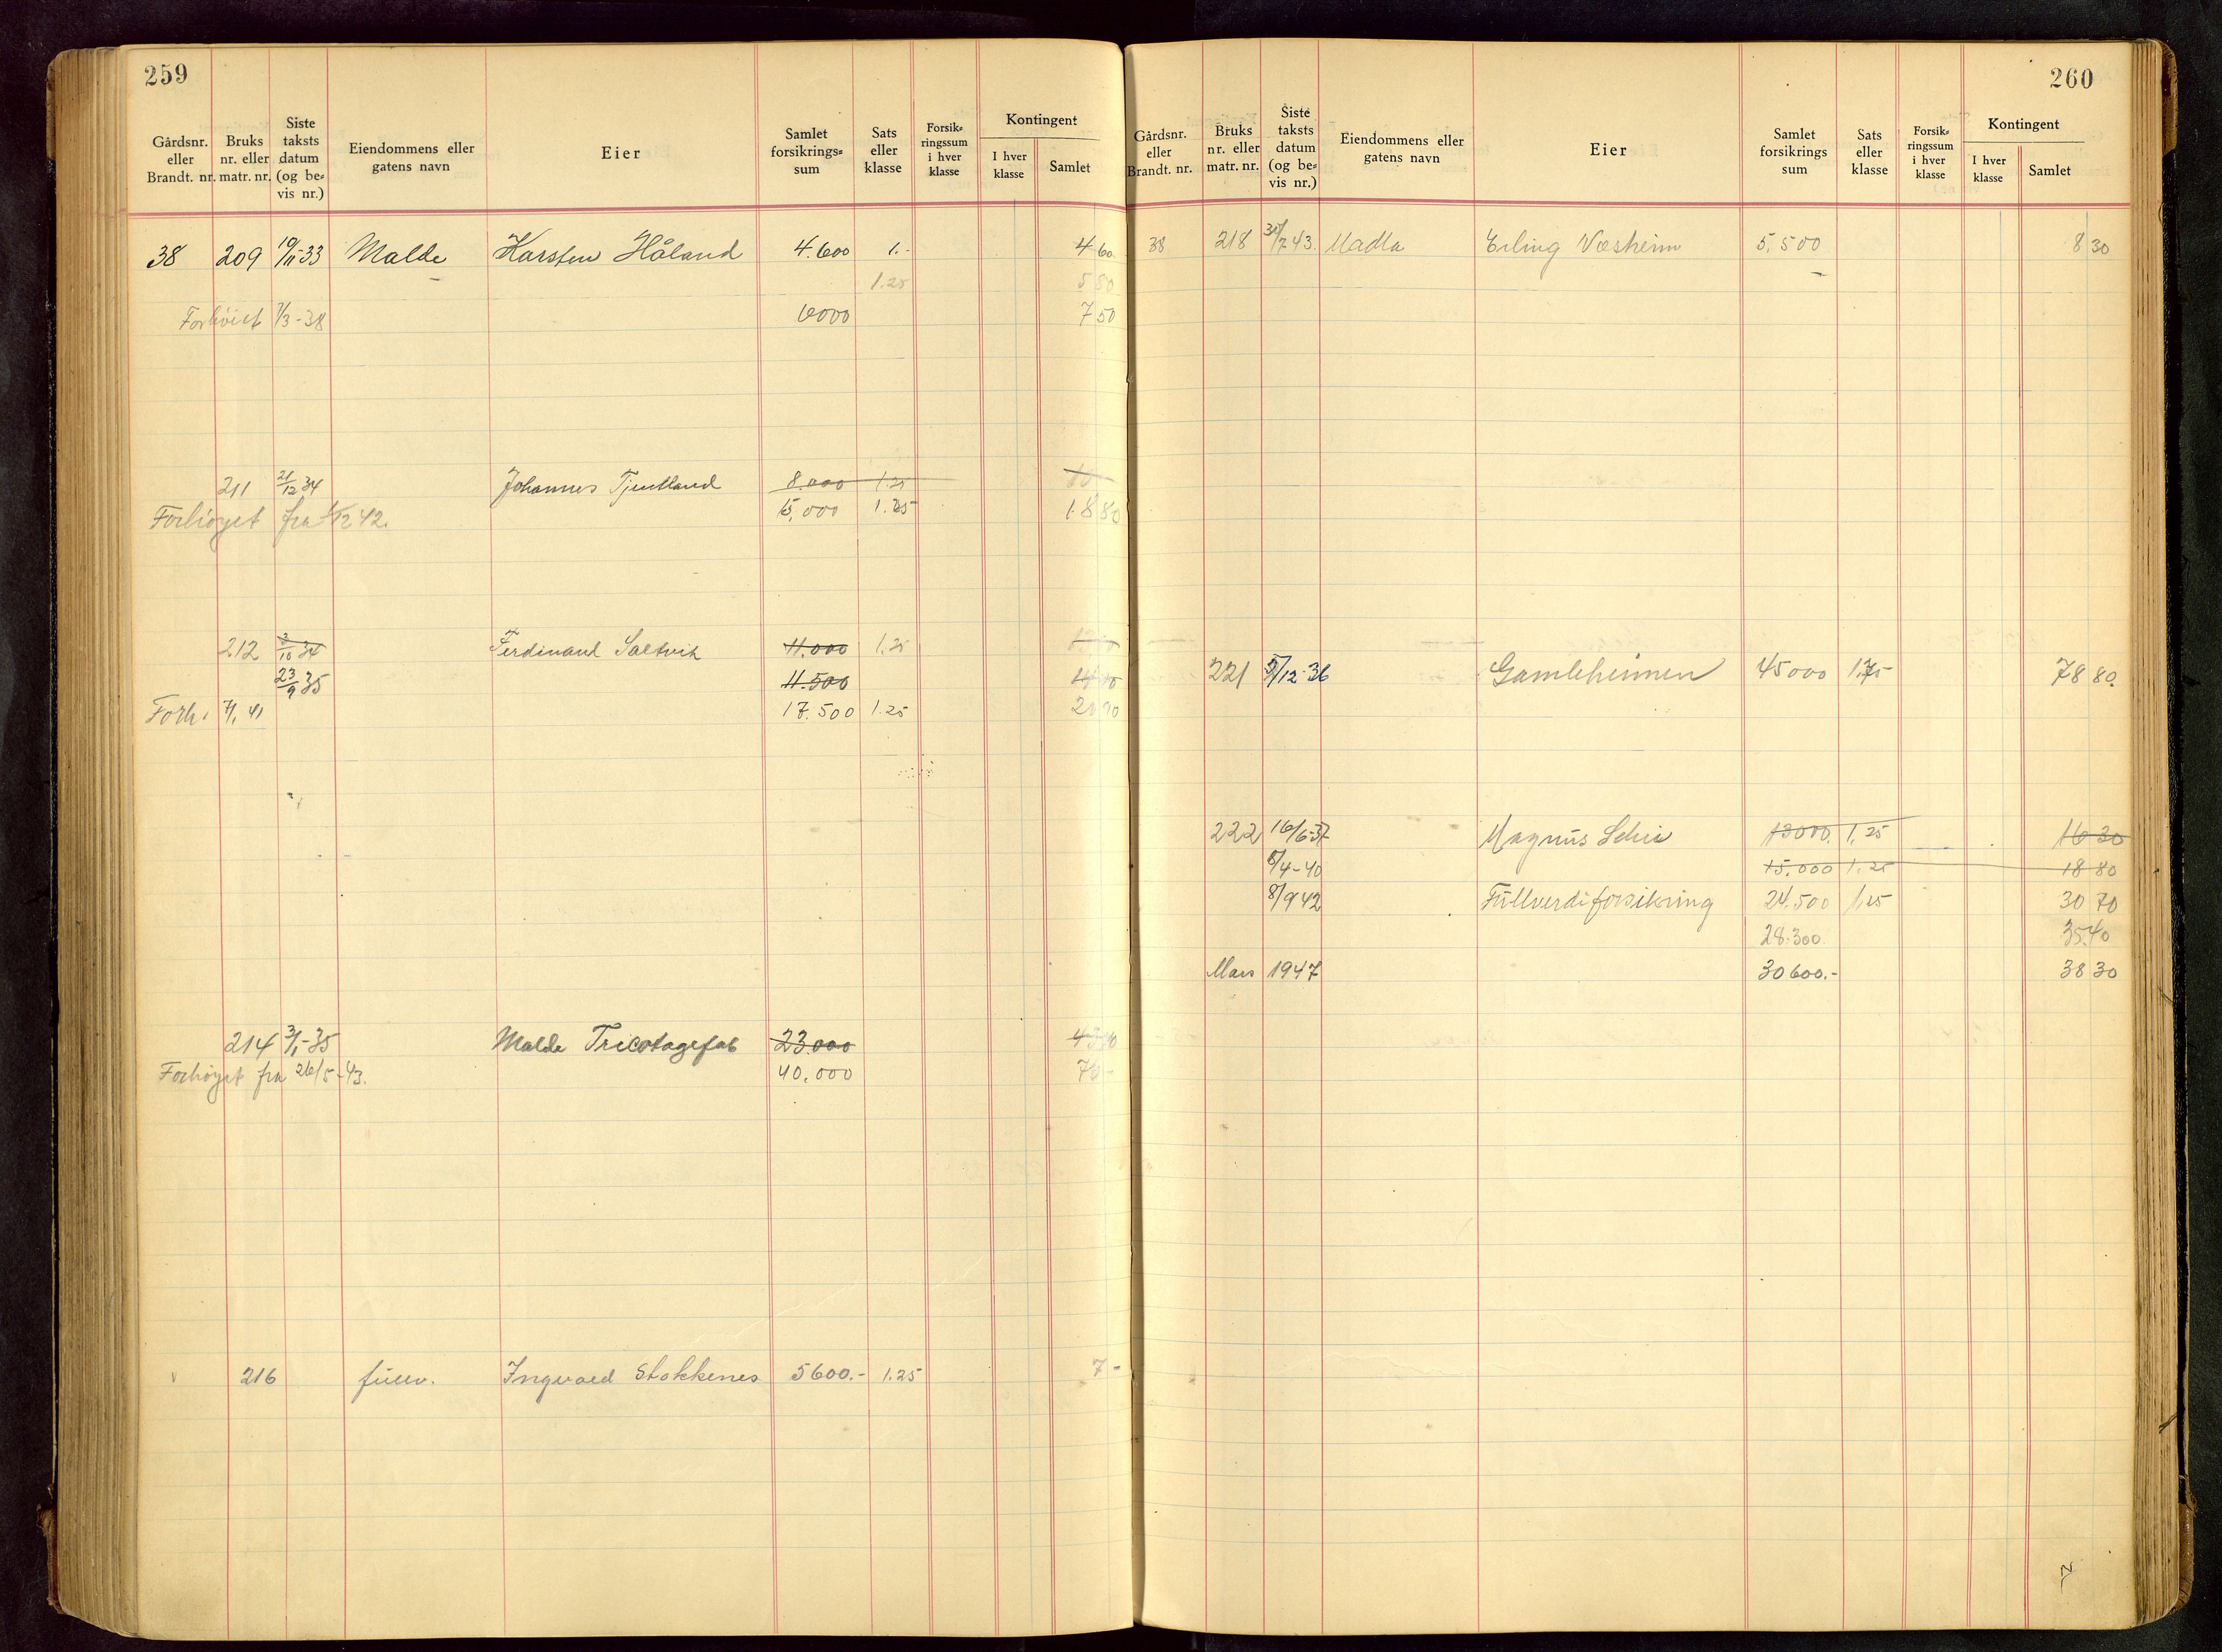 259
Gårdsnr. eller Brandt. nr. Bruks nr. eller matr. nr. Siste taksts datum (og be= vis nr.) Eiendommens eller gatens navn Eier Samlet forsikrings= sum Sats eller klasse Forsik= ringssum i hver klasse Kontingent I hver klasse Samlet
38 209 10/11-33 Malde Karsten Håland 4.600 1.- 4 60
1.25 5 80
Forhöiet 7/3-38 6000 7 50
211 21/12 34 Johannes Tjentland 8.000 1.25 10
Forhöyet fra 1/12 42. 15,000 1.25 18 80
212 2/10 34 Ferdinand Saltvik 11.000 1.25
23/9 35 11.500
Forh. 7/1 41 17.500 1.25
214 3/1-35 Malde Tricotagefab 23.000
Forhöyet fra 26/5-43. 40.000 70 -
216 fullv. Ingvald Stokkenes 5600.- 1.25 7 -
260
Gårdsnr. eller Brandt. nr. Bruks nr. eller matr. nr. Siste taksts datum (og be= vis nr.) Eiendommens eller gatens navn Eier Samlet forsikrings sum Sats eller klasse Forsik= ringssum i hver klasse Kontingent I hver klasse Samlet
38 218 31/7 43. Madla Erling Næsheim 5.500 8 30
221 5/12-36 Gamleheimen 45000 1.75 78 80
222 16/6-37 Magnus 13000. 1,25 16 30
5/4-40 15.000 1.25 18 80
8/9 42 Fullverdiforsikring 24.500 1,25 30 70
28.300. 35.40
Mars 1947 30600.- 38 30